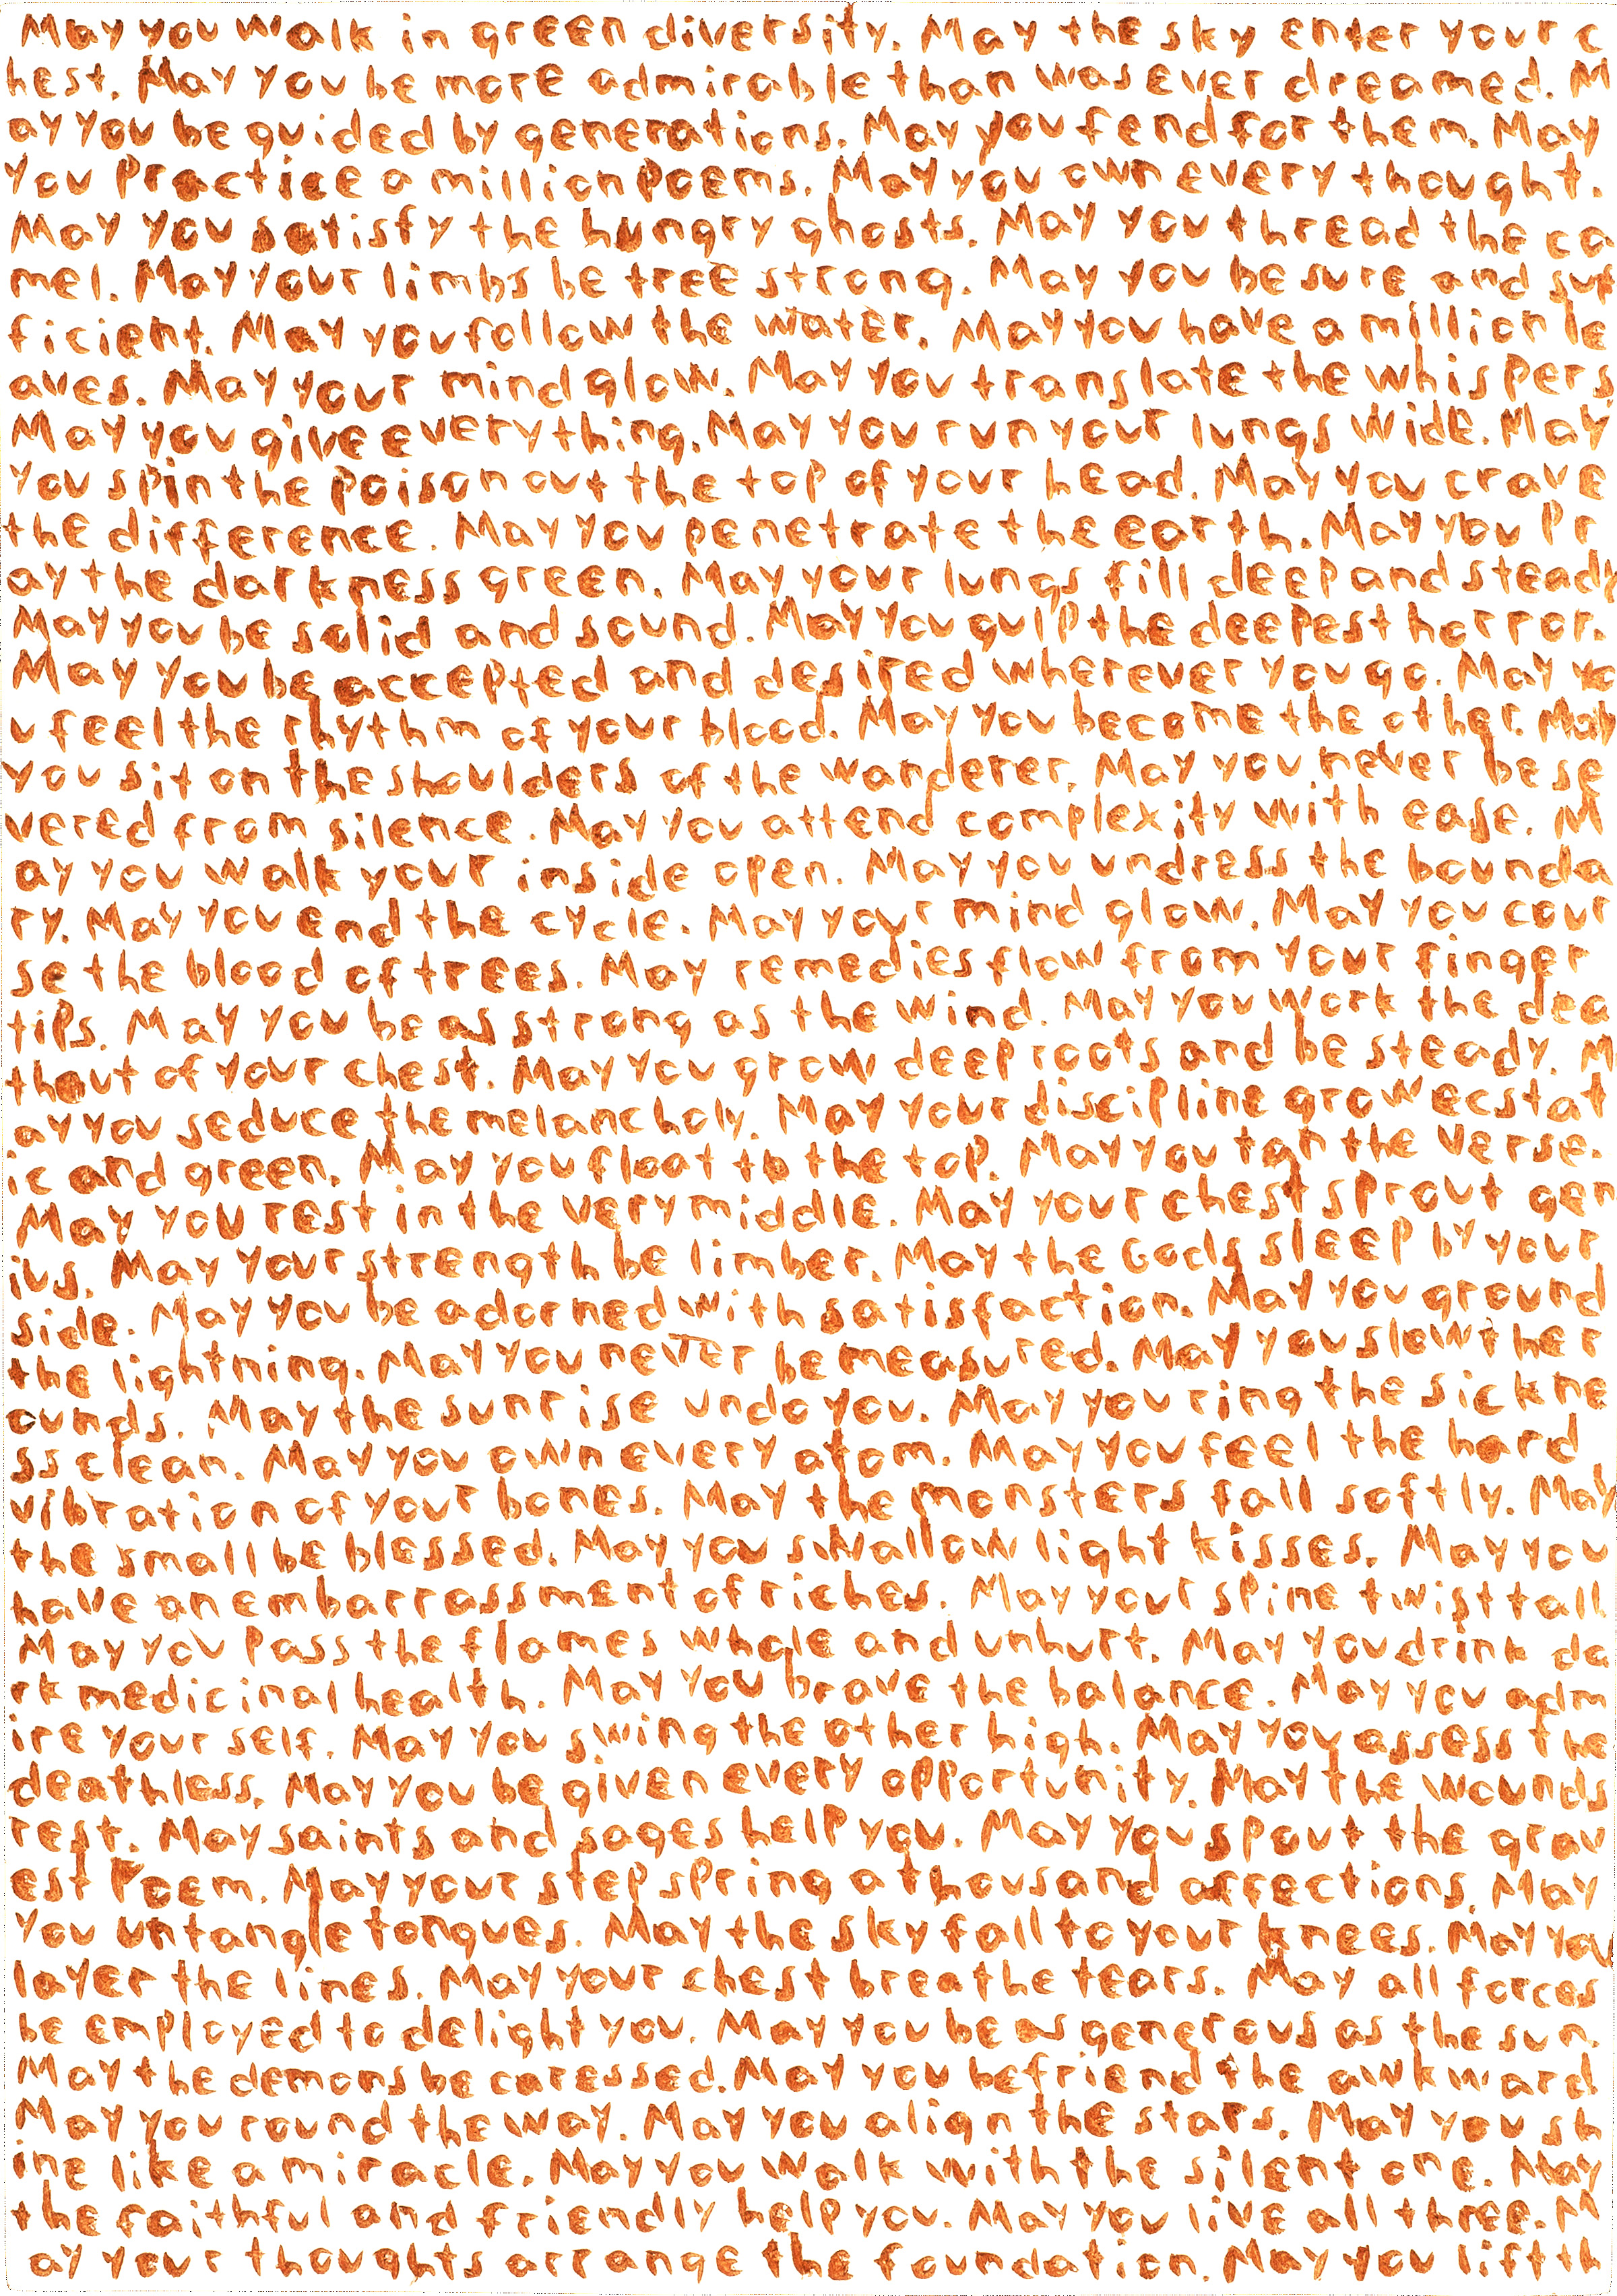 May you walk in green diversity. May the sky enter your c
hest. May you be more admirable than was ever dreamed. M
ay you be guided by generations. May you fend for them. May
you practice a million poems. May you own every thought.
May you satisfy the hungry ghosts. May you thread the ca
mel. May your limbs be tree strong. May you be sure and suf
ficient. May you follow the water. May you have a million le
aves. May your mind glow. May you translate the whispers
May you give everything. May you run your lungs wide. May
you spin the poison out the top of your head. May you crave
the difference. May you penetrate the earth. May you pr
ay the darkness green. May your lungs fill deep and steady
May you be solid and sound. May you gulp the deepest horror.
May you be accepted and desired wherever you go. May yo
u feel the rhythm of your blood. May you become the other. May
you sit on the shoulders of the wanderer. May you never be se
vered from silence. May you attend complexity with ease. M
ay you walk your inside open. May you undress the bounda
ry. May you end the cycle. May your mind glow. May you cour
se the blood of trees. May remedies flow from your finger
tips. May you be as strong as the wind. May you work the dea
th out of your chest. May you grow deep roots and be steady. M
ay you seduce the melancholy. May your discipline grow ecstat
ic and green. May you float to the top. May you tan the verse.
May you rest in the very middle. May your chest sprout gen
ius. May your strength be limber. May the Gods sleep by your
side. May you be adorned with satisfaction. May you ground
the lightning. May you never be measured. May you slow the r
ounds. May the sunrise undo you. May you ring the sickne
ss clean. May you own every atom. May you feel the hard
vibration of your bones. May the monsters fall softly. May
the small be blessed. May you swallow light kisses. May you
have an embarrassment of riches. May your spine twist tall.
May you pass the flames whole and unhurt. May you drink da
rk medicinal health. May you brave the balance. May you adm
ire your self. May you swing the other high. May you assess the
deathless. May you be given every opportunity. May the wounds
rest. May saints and sages help you. May you spout the grav
est poem. May your step spring a thousand affections. May
you untangle tongues. May the sky fall to your knees. May you
layer the lines. May your chest breathe tears. May all forces
be employed to delight you. May you be as generous as the sun.
May the demons be caressed. May you befriend the awkward
May you round the way. May you align the stars. May you sh
ine like a miracle. May you walk with the silent one. May
the faithful and friendly help you. May you live all three. M
ay your thoughts arrange the foundation. May you lift th